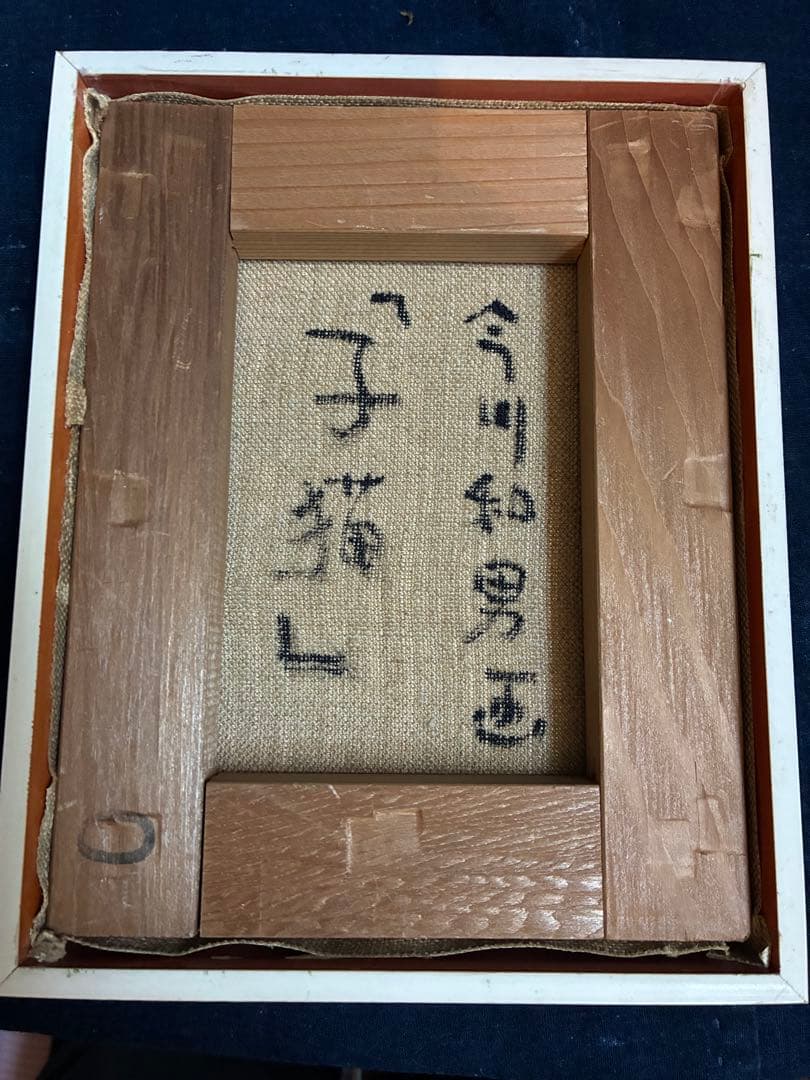 今川和男画
「子猫」
0